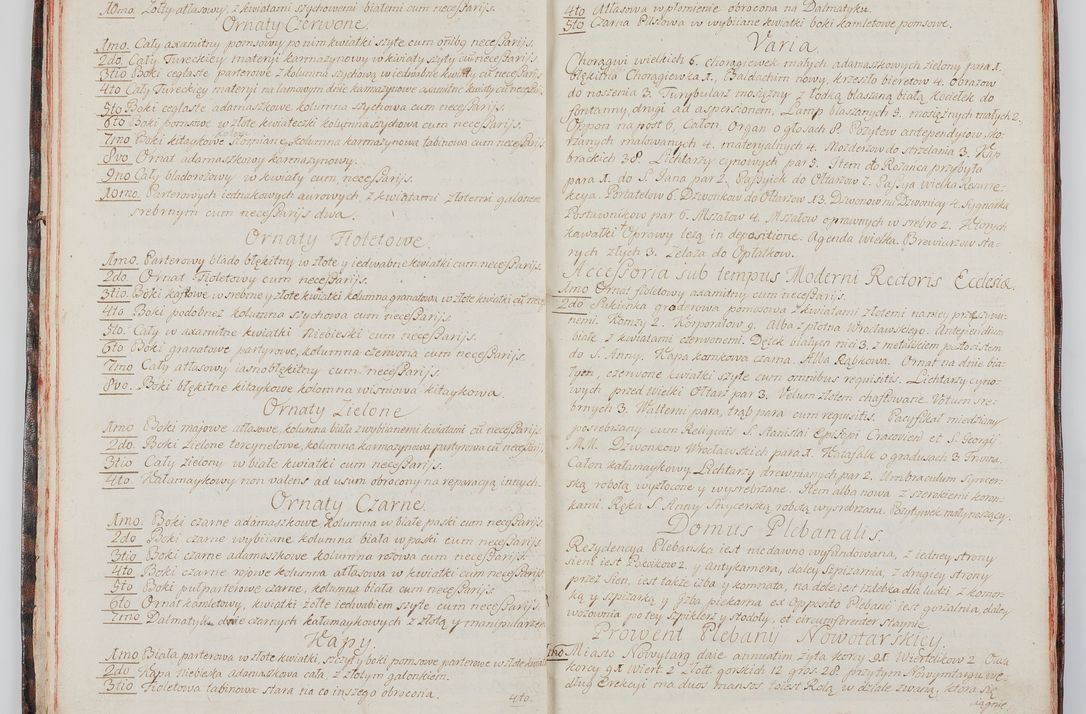 10mo. Zołty atłasowy, z kwiatami szychowemi białemi cum necessarijs.
Ornaty Czerwone.
1mo. Cały axamitny ponsowy po nim kwiatki szyte cum omnibg necessarijs.
2do. Cały Tureckiey materyi karmazynowy w kwiaty szyty cum necessarijs.
3tio Boki ceglaste parterowe z kolumną szychową w iedwabne kwiaty cum necessarijs.
4to Cały Tureckiey materyi na lamowym dnie karmazynowe axamitne kwiaty cum necessarijs.
5to Boki ceglaste adamaszkowe kolumna szychowa cum necessarijs.
6to Boki ponsowe w złote kwiateczki kolumna szychowa cum necessarijs.
7mo Boki kitaykowe słomiane kolumna karmazynowa tabinowa cum necessarijs.
8vo. Ornat adamaszkowy karmazynowy.
9no Cały bladorożowy w kwiaty cum necessarijs.
10mo. Parterowych iednakowych aurowych, z kwiatami złotemi galonem
srebrnym cum necessarijs dwa.
Ornaty Fioletowe.
1mo. Parterowy blado błękitny w złote y iedwabne kwiatki cum necessarijs.
2do. Ornat Fioletowy cum necessarijs.
3tio. Boki kaftowe w srebrne y złote kwiatki kolumna granatowa w złote kwiatki cum necessarijs
4to Boki podobnez kolumna szychowa cum necessarijs.
5to. Cały w axamitne kwiatki Niebieski cum necessarijs.
6to Boki granatowe partyrowe, kolumna czerwona cum necessarijs.
7mo Cały atłasowy iasnobłękitny cum necessarijs.
8vo. Boki błękitne kitaykowe kolomna wisniowa kitaykowa.
Ornaty Zielone
1mo Boki majowe atłasowe, kolumna biała z wybiianemi kwiatami cum necessarijs.
2do. Boki Zielone tercynelowe, kolumna karmazynowa partyrowa cum necessarijs.
3tio Cały zielony w białe kwiatki cum necessarijs.
4to. Kałamaykowy non valens ad usum obrocony na reparacyą innych.
Ornaty Czarne
1mo. Boki czarne adamaszkowe kolumna w białe paski cum necessarijs.
2do Boki czarne wybiiane kolumna biała w paski cum necessarijs.
3tio Boki czarne adamaszkowe kolumna rożowa cum necessarijs.
4to Boki czarne rojowe kolumna atłasowa w kwiatki cum necessarijs
5to Boki pułparterowe czarne, kolumna biała cum necessarijs
6to Ornat kamletowy, kwiatki żołte iedwabiem szyte cum necessarijs.
7mo Dalmatyk dwie czarnych kałamaykowych z stułą y manipularzem.
Kapy.
1mo Biała parterowa w złote kwiatki, szczyt y boki ponsowe parterowe w złote kwiatki
2do Kapa niebieska adamaszkowa cała z złotym galonkiem.
3tio Fioletowa tabinowa stara na co inszego obrocona.
4to.
4to Atłasowa w płomienie obrocona na Dalmatykę.
5to Czarna Pilsiowa w wybiiane kwiatki boki kamletowe ponsowe.
Varia.
Chorągwi wielkich 6. chorągiewek małych adamaszkowych zielony para 1.
błękitna Chorągiewka 1. Baldachim nowy, krzesło bieretow 4. obrazow
do noszenia 3. Turybularz mosiężny z łodką blaszaną białą Kociełek do
fontanny, drugi ad aspersionem, Lamp blaszanych 3. mosiężnych małych 2.
Oppon na post 6, Całon, Organ o głosach 8. Pozytew antependyiow sko-
rzanych malowanych 4. materyalnych 4. Mozdzerzow do strzelania 3. Kap
brackich 38. Lichtarzy cynowych par 5. Item do Rożanca przybyła
para 1. do S. Jana par 2. Passyiek do Ołtarzow 7. Passya wielka Resurre-
kcya. Portatelow 6. Dzwonkow do Ołtarzow 13. Dzwonow na Dzwonicy 4. Sygnatka
Postawnikow par 6. Mszałow 4. Mszałow oprawnych w srebro 2. Ktorych
kawałki Oprawy leżą in depositione. Agenda wielka. Brewiarzow sta-
rych złych 3. Zelaza do Opłatkow.
Accessoria sub tempus Moderni Rectoris Ecclesiæ.
1mo Ornat fioletowy axamitny cum necessarijs.
2do Sukienka grodetorowa ponsowa z kwiatami złotemi na niey przeszywa-
nemi. Komży 2. Korporałow 9. Alba z płotna Wrocławskiego. Antependium
białe z kwiatami czerwonemi. Dętek białych nici 3, z metalikiem pozłocistem
do S. Anny. Kapa komkowa czarna. Alba Rąbkowa. Ornat na dnie bia-
łym, czerwone kwiatki szyte cum omnibus requisitis. Lichtarzy cyno-
wych przed Wielki Ołtarz par 3. Velum złotem chaftowane. Votum sre-
brnych 3. Walterni para, trąb para cum requsitis. Pacyfikał miedziany
posrebrzany cum Reliquiis S. Stanislai Episcopi Cracovien: et S. Georgii
M. M. Dzwonkow Wrocławskich para 1. Katafalk o gradusach 3. Trunna.
Całon kałamaykowy Lichtarzy drewnianych par 2. Umbraculum snycer-
ską robotą wyzłocone y wysrebrzane. Item alba nowa z szerokiemi koron-
kami. Ręka S. Anny snycerską robotą wysrebrzana. Pozytywek mały noszący.
Domus Plebanalis.
Rezydencya Plebanska iest niedawno wyfundowana, z iedney strony
sieni iest Pokoikow 2. y antykamera, daley szpizarnia, z drugiey strony
przez sien, iest także izba y komnata, na dole iest izdebka dla ludzi z komor-
ką y szpizarką y Izba piekarna ex Opposito Plebanii iest gorzalnia, daley
wozownia po tey spiklerz y stodoły, et circumferenter staynie.
Prowent Plebanii Nowotarskiey.
1mo Miasto Nowytarg daie annuatim żyta korcy 91. Wiertelikow 2. Owsa
korcy 91. wiert: 2 Złłt. gorskich 12 gros 28. przytym Nowymtargu we-
dług Erekcyi ma duos mansos to iest Rolą w dziale zwaną, ktora się
ciągnie